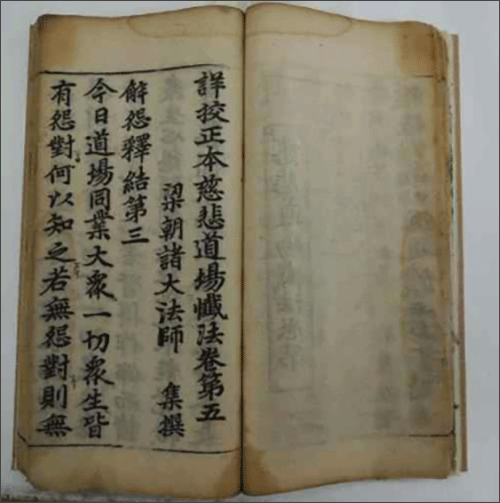 詳挍正本慈悲道場懺法卷第五
梁朝諸大法師　集撰
解怨釋結第三
今日道場同業大衆一切衆生皆
有怨對何以知之若無怨對則無